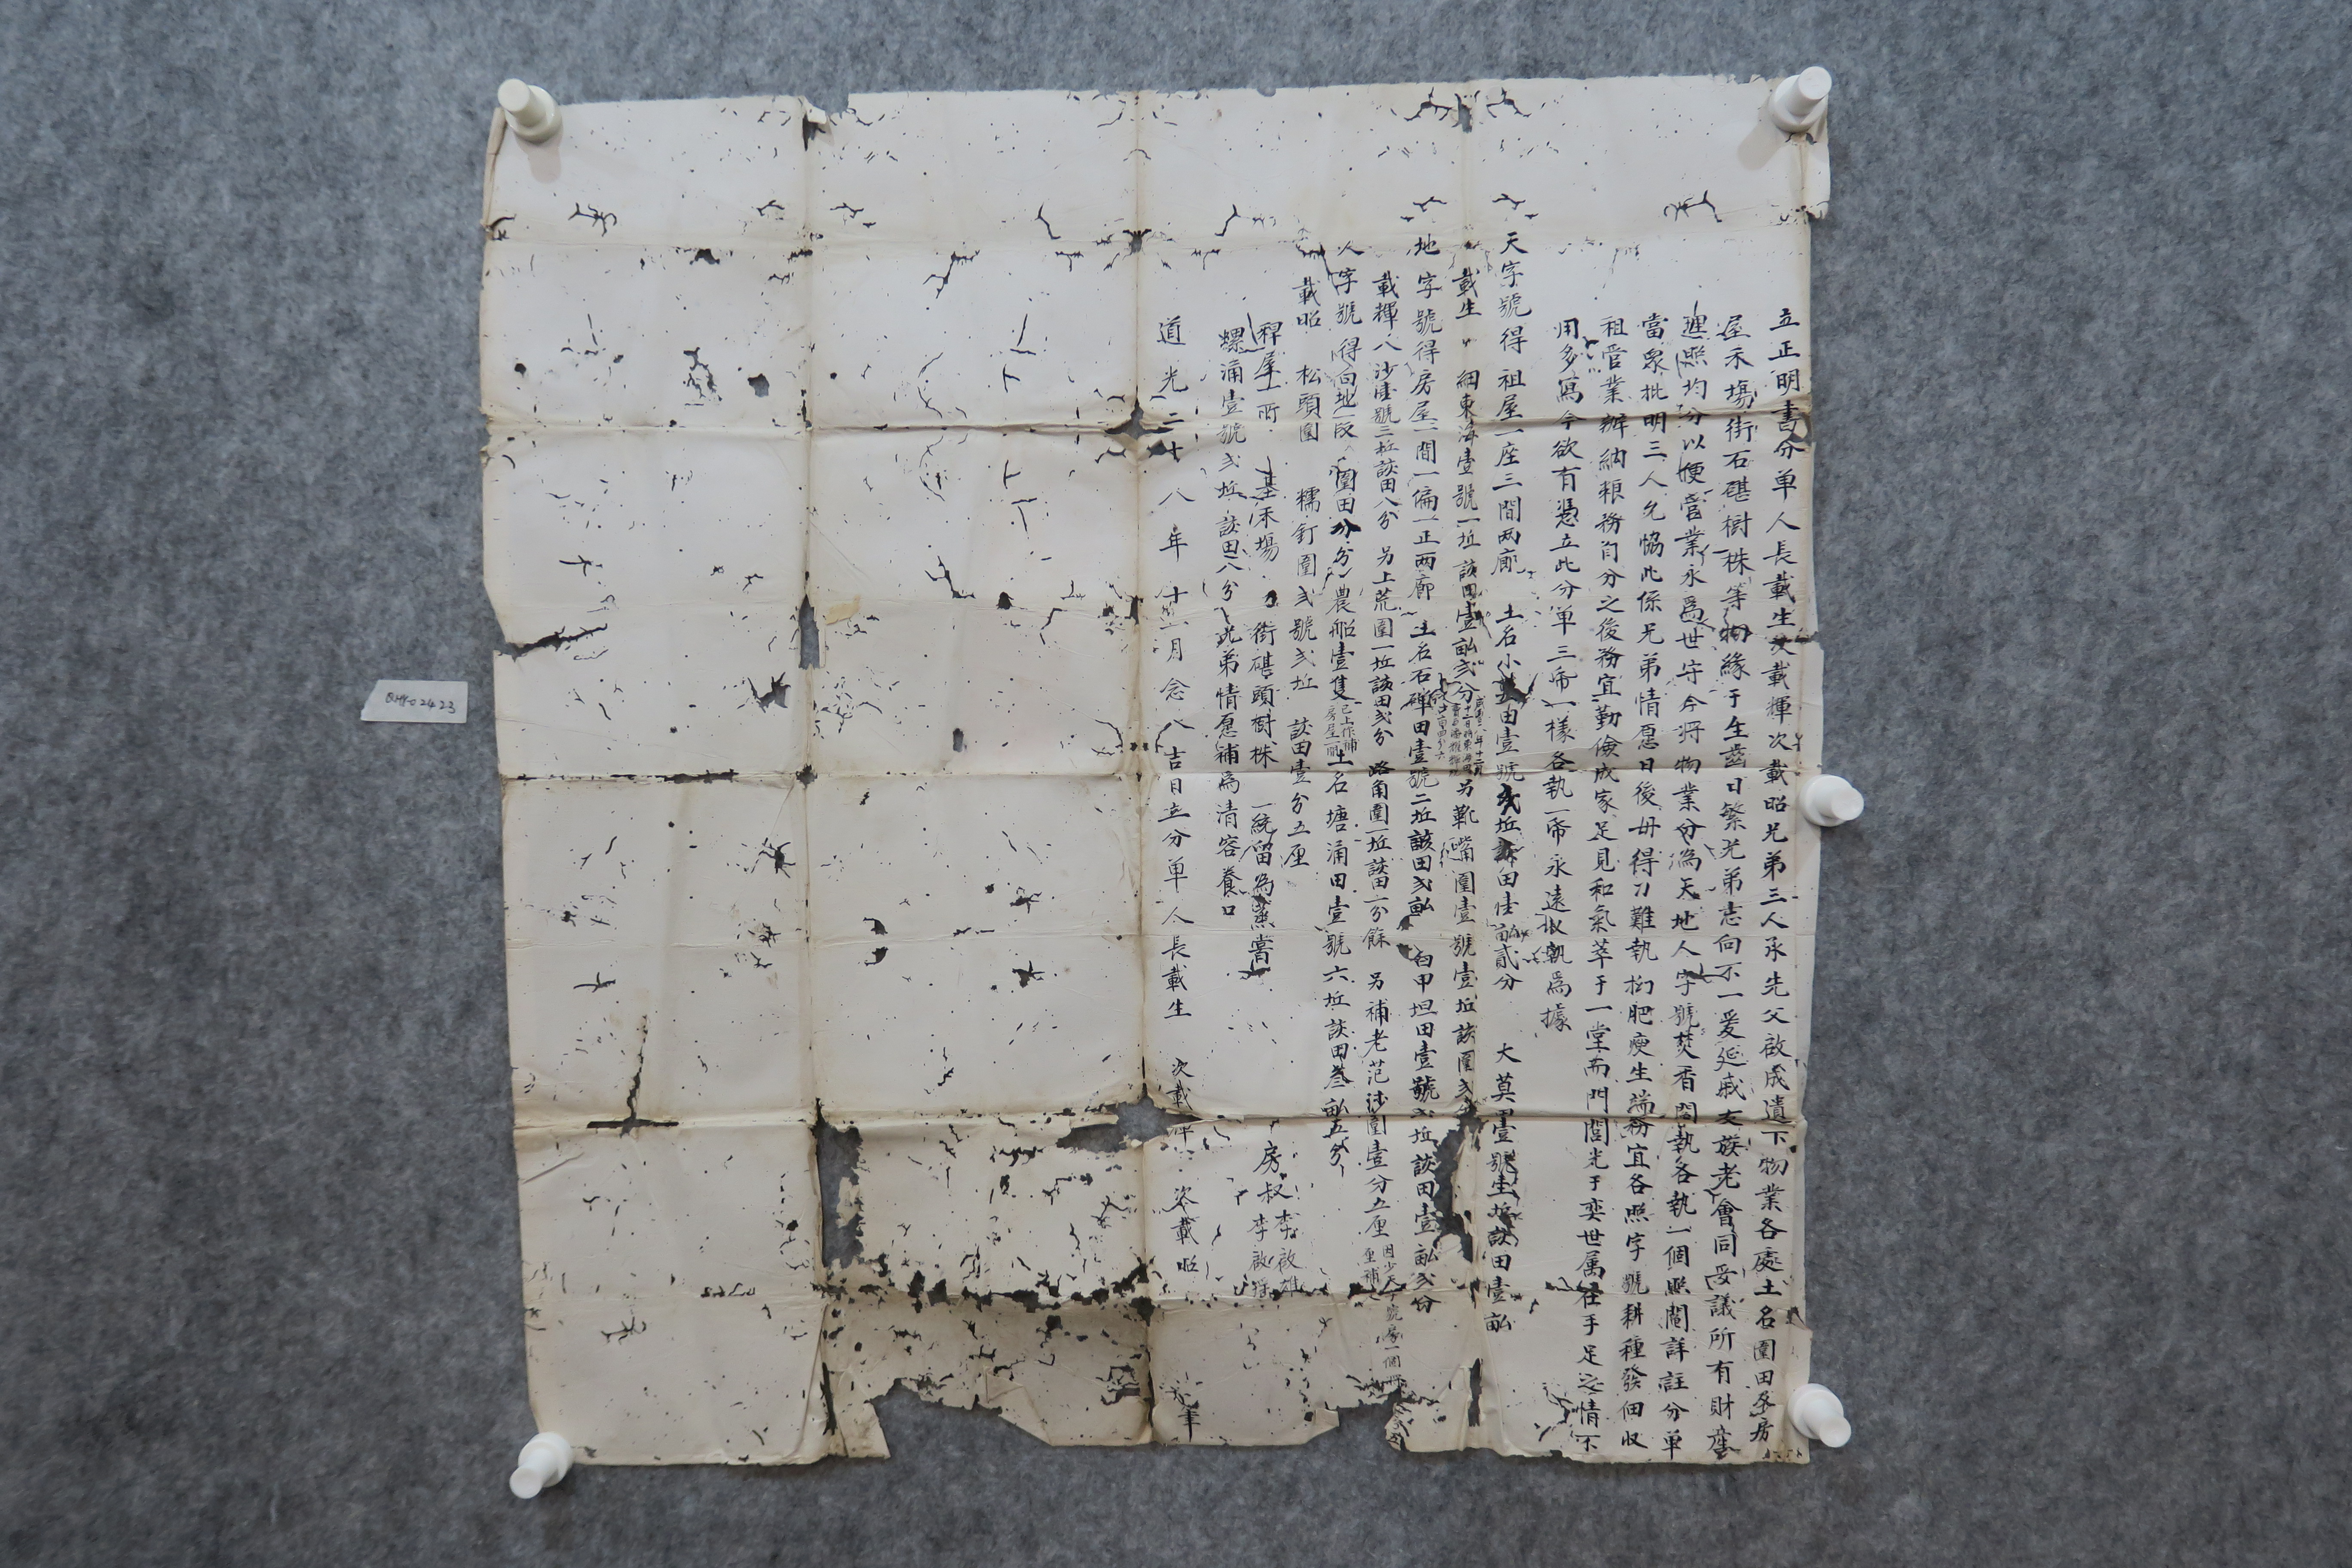 立正明書分单人長載生次載輝次載昭兄弟三人承先父啟成遺下物業各處土名圍田塋房
屋禾塲街石磡樹株等物緣于生齒日繁兄弟志向不一爰延戚友族老會同妥議所有財產
逓照均分以便管業永爲世守今将物業分為天地人字號焚香鬮執各執一個照鬮詳註分单
當眾批明三人允恊此係兄弟情愿日後毋得刁難執拗肥瘦生端務宜各照字號耕種發佃収
祖管業辦納粮務自分之後務宜勤儉成家足見和氣萃于一堂而門閭光于奕世属在手足之情不
用多寫今欲有憑立此分单三帋一樣各執一帋永遠收執爲據
天字號得祖屋一座三間两廊 土名小 田壹號弍坵該田壹畝貳分 大莫田壹號壹坵該田壹畝
載生 細東海壹號一坵該田壹畝弍分 另靴嘴圍壹號壹坵該圍弍分
地字號得房屋一間一偏一正两廊 土名石碑田壹號二坵該田弍畝 白甲坦田壹號弍坵該田壹畝弍份
載輝八沙壹號三坵該田八分 另上荒圍一坵該田弍分 路角圍一坵該田一分餘 另補老范沙圍壹分五厘 因少天字號房一個
人字號得向地一段 圍田分分農船壹隻 已上作補房屋一所 土名塘涌田壹號六坵該田叁畝五分
載昭 松頭圍 糯釘圍弍號弍坵 該田壹分五厘
稈屋一所 基禾塲 街磡頭樹株 一統留為蒸嘗
螺涌壹號弍坵該田八分 兄弟情愿補爲清容養口
房叔李啟雄
李啟
道光二十八年十一月念八吉日立分单人長載生 次載輝 次載昭 筆
BHY-02423